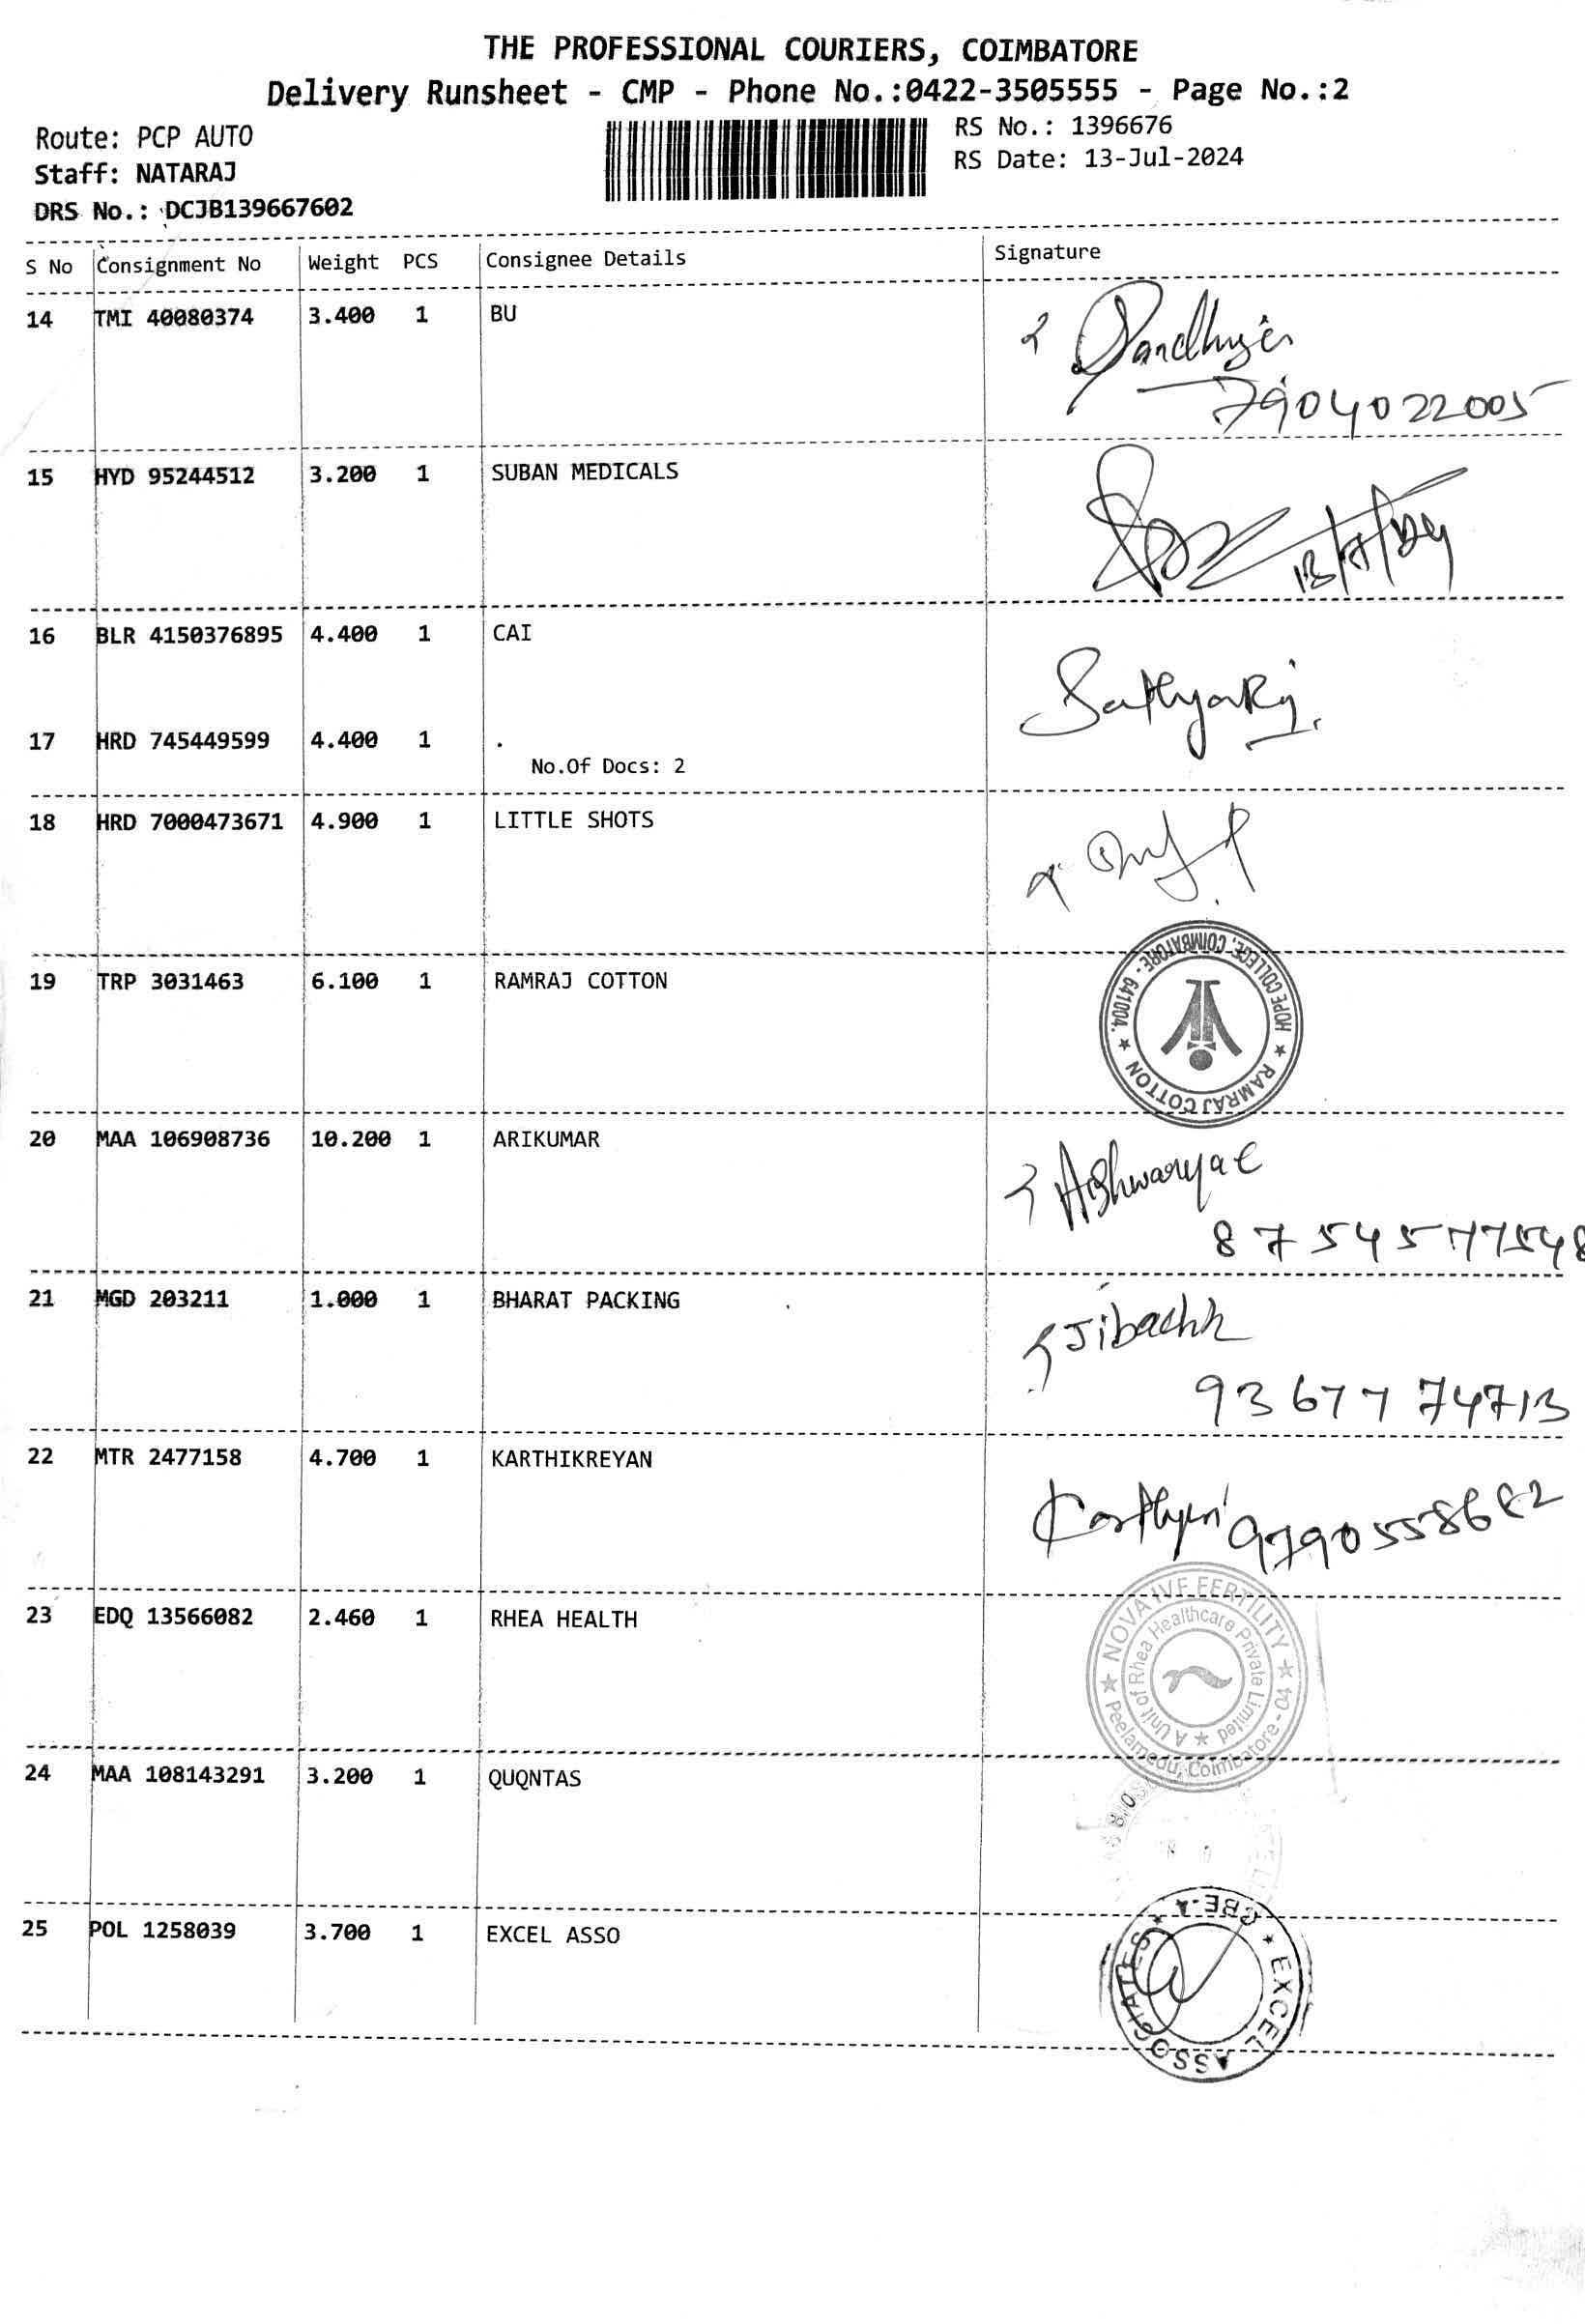 THE PROFESSIONAL COURIERS, COIMBATORE
Delivery Runsheet - CMP - Phone No.:0422-3505555 - Page No.:2
Route: PCP AUTO
Staff: NATARAJ
DRS No.: DCJB139667602
RS No.: 1396676
RS Date: 13-Jul-2024
S No Consignment No Weight PCS Consignee Details Signature
14 TMI 40080374 3.400 1 BU
7904022005
15 HYD 95244512 3.200 1 SUBAN MEDICALS
13/7/24
16 BLR 4150376895 4.400 1 CAI
17 HRD 745449599 4.400 1 .
No.Of Docs: 2
18 HRD 7000473671 4.900 1 LITTLE SHOTS
19 TRP 3031463 6.100 1 RAMRAJ COTTON
★ RAMRAJ COTTON ★ HOPE COLLEGE, COIMBATORE - 641004.
20 MAA 106908736 10.200 1 ARIKUMAR
Aishwarya C
8754577548
21 MGD 203211 1.000 1 BHARAT PACKING
Jibachh
9367774713
22 MTR 2477158 4.700 1 KARTHIKREYAN
23 EDQ 13566082 2.460 1 RHEA HEALTH
★ NOVA IVF FERTILITY ★ Peelamedu, Coimbatore - 04
A Unit of Rhea Healthcare Private Limited ★
24 MAA 108143291 3.200 1 QUQNTAS
25 POL 1258039 3.700 1 EXCEL ASSO
★ EXCEL ASSOCIATES ★ CBE-4